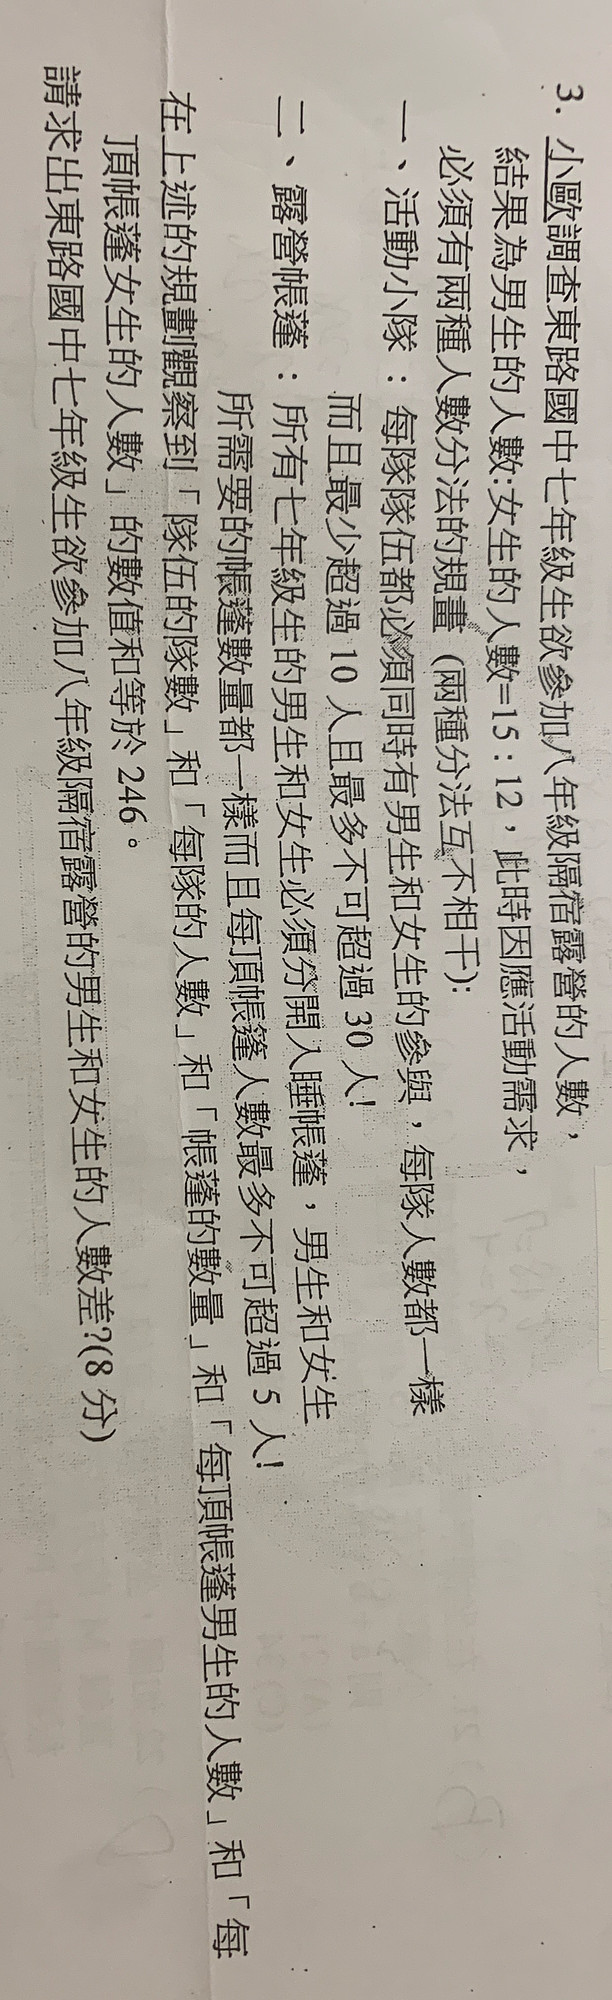 3. 小歐調查東路國中七年級生欲參加八年級隔宿露營的人數，
結果為男生的人數:女生的人數=15：12，此時因應活動需求，
必須有兩種人數分法的規畫（兩種分法互不相干）：
一、活動小隊：每隊隊伍都必須同時有男生和女生的參與，每隊人數都一樣
而且最少超過 10 人且最多不可超過 30 人!
二、露營帳蓬：所有七年級生的男生和女生必須分開入睡帳蓬，男生和女生
所需要的帳蓬數量都一樣而且每頂帳篷人數最多不可超過 5 人!
在上述的規劃觀察到「隊伍的隊數」和「每隊的人數」和「帳蓬的數量」和「每頂帳蓬男生的人數」和「每
頂帳蓬女生的人數」的數值和等於 246。
請求出東路國中七年級生欲參加八年級隔宿露營的男生和女生的人數差?(8 分)